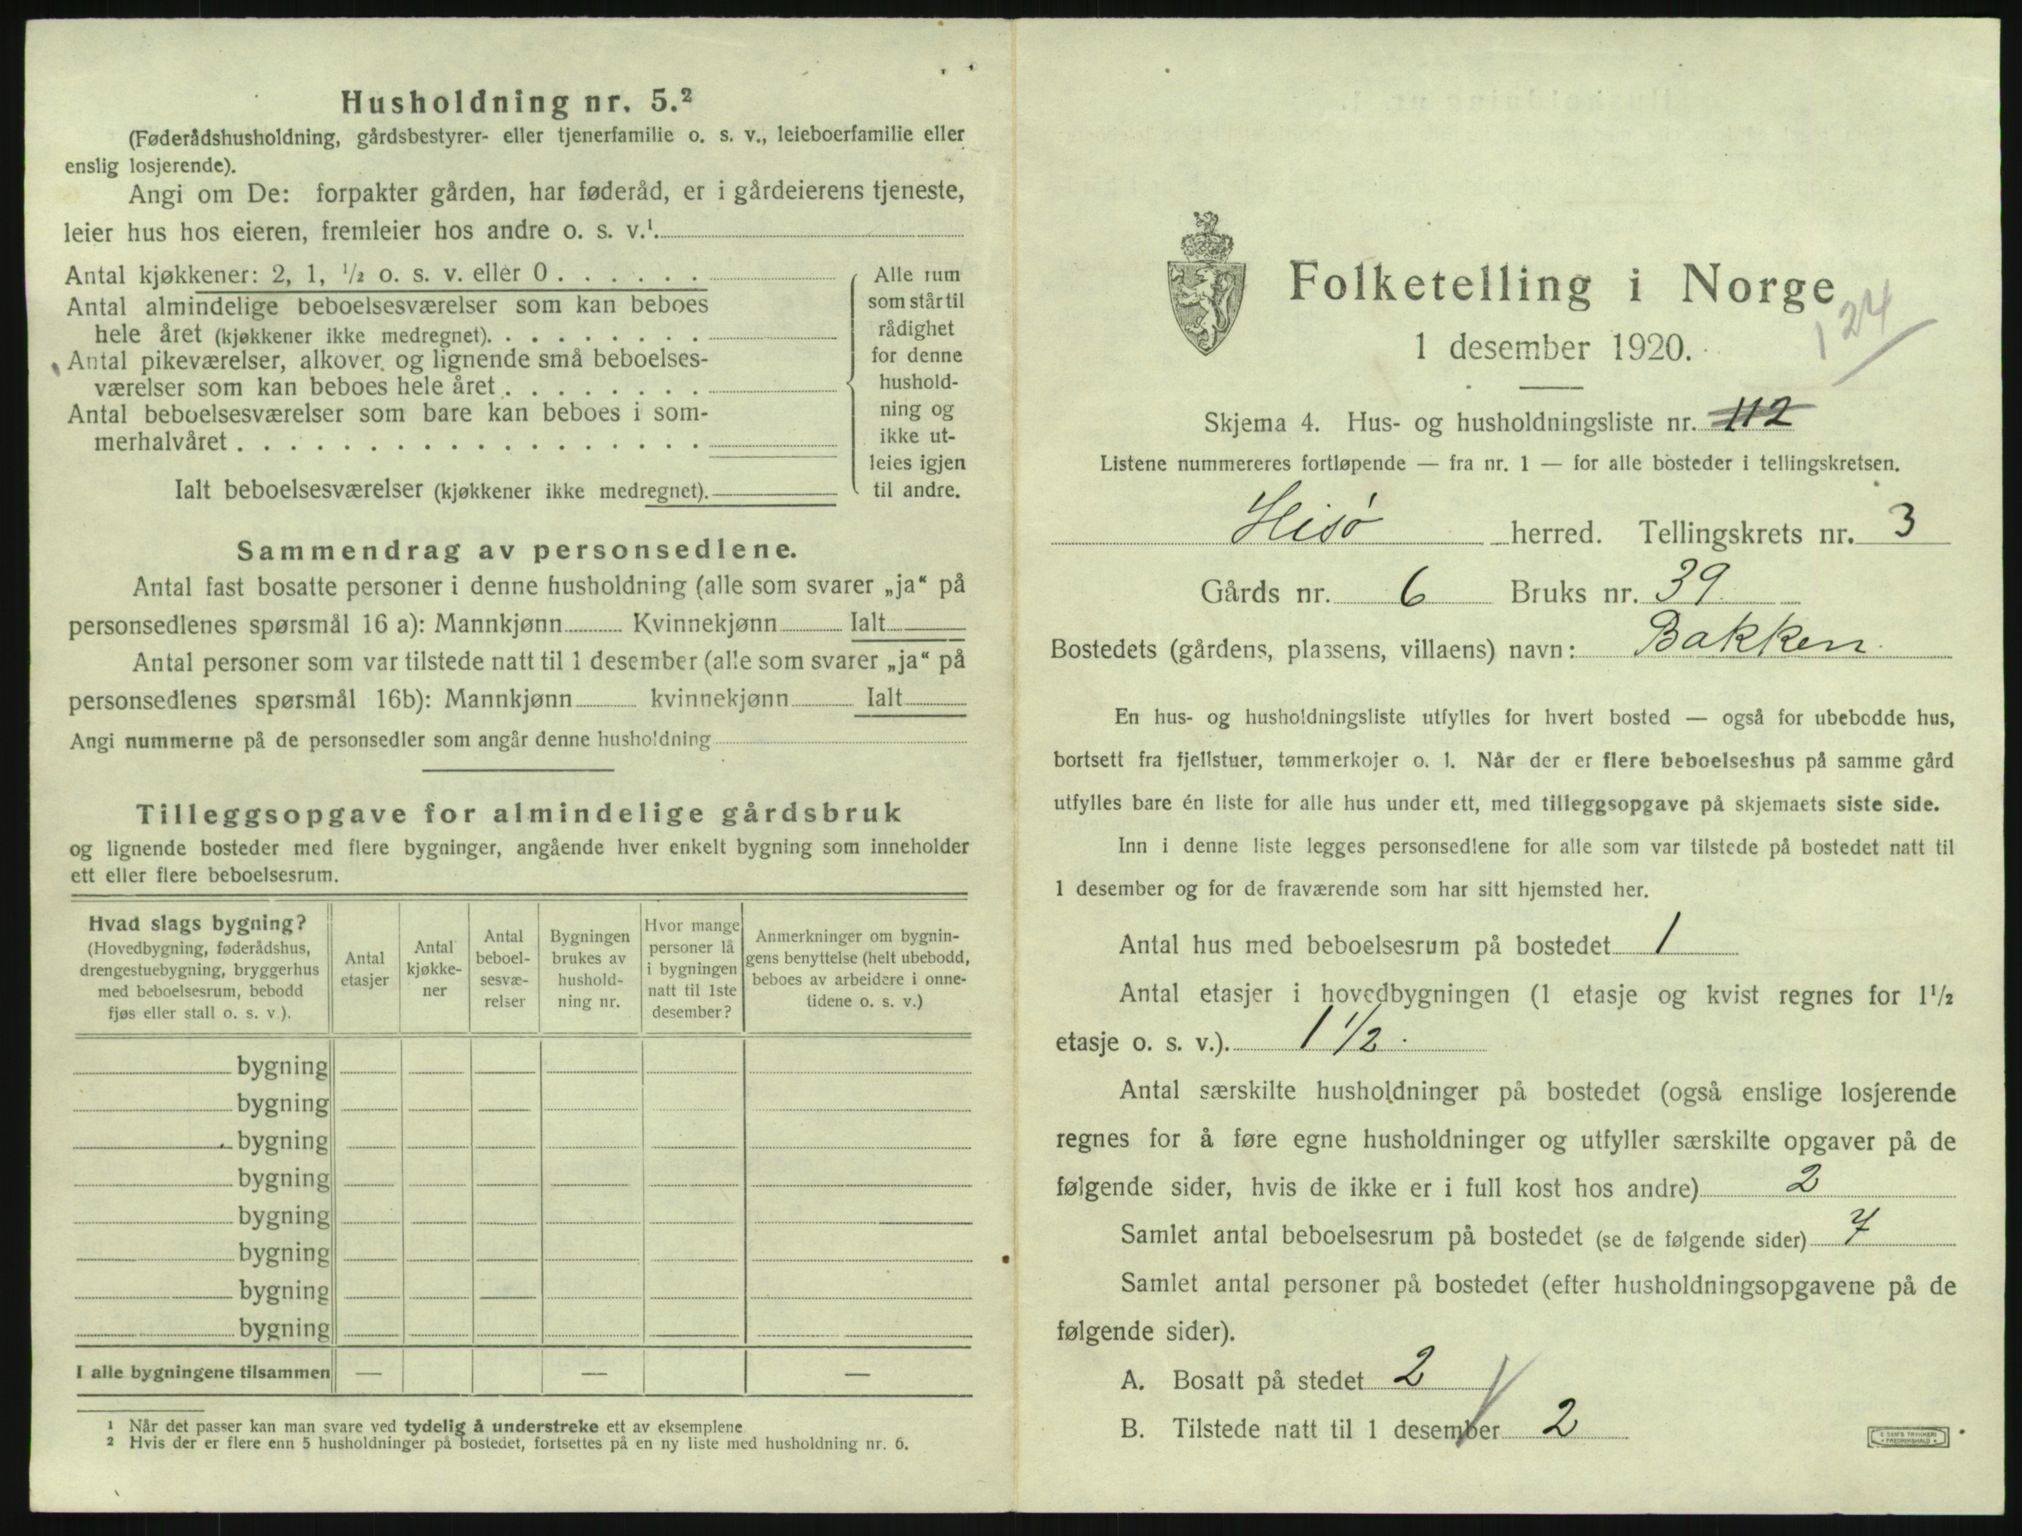 Husholdning nr. 5.²
(Føderådshusholdning, gårdsbestyrer- eller tjenerfamilie o. s. v., leieboerfamilie eller
enslig losjerende).
Angi om De: forpakter gården, har føderåd, er i gårdeierens tjeneste,
leier hus hos eieren, fremleier hos andre o. s. v.¹
Antal kjøkkener: 2, 1, ½ o. s. v. eller 0 . . . . . .
Antal almindelige beboelsesværelser som kan beboes
hele året (kjøkkener ikke medregnet). . . . . . . . .
Antal pikeværelser, alkover og lignende små beboelses-
værelser som kan beboes hele året . . . . . . . .
Antal beboelsesværelser som bare kan beboes i som-
merhalvåret . . . . . . . . . . . . . . . . . .
Ialt beboelsesværelser (kjøkkener ikke medregnet).
Alle rum
som står til
rådighet
for denne
hushold-
ning og
ikke ut-
leies igjen
til andre.
Sammendrag av personsedlene.
Antal fast bosatte personer i denne husholdning (alle som svarer „ja“ på
personsedlenes spørsmål 16 a): Mannkjønn Kvinnekjønn Ialt
Antal personer som var tilstede natt til 1 desember (alle som svarer „ja“ på
personsedlenes spørsmål 16b): Mannkjønn kvinnekjønn Ialt
Angi nummerne på de personsedler som angår denne husholdning
Tilleggsopgave for almindelige gårdsbruk
og lignende bosteder med flere bygninger, angående hver enkelt bygning som inneholder
ett eller flere beboelsesrum.
Hvad slags bygning?
(Hovedbygning, føderådshus,
drengestuebygning, bryggerhus
med beboelsesrum, bebodd
fjøs eller stall o. s. v.).
Antal
etasjer
Antal
kjøkke-
ner
Antal
beboel-
sesvæ-
relser
Bygningen
brukes av
hushold-
ning nr.
Hvor mange
personer lå
i bygningen
natt til 1ste
desember?
Anmerkninger om bygnin-
gens benyttelse (helt ubebodd,
beboes av arbeidere i onne-
tidene o. s. v.)
bygning
bygning
bygning
bygning
bygning
bygning
bygning
bygning
I alle bygningene tilsammen — — —
¹ Når det passer kan man svare ved tydelig å understreke ett av eksemplene
² Hvis der er flere enn 5 husholdninger på bostedet, fortsettes på en ny liste med husholdning nr. 6.
Folketelling i Norge
1 desember 1920.
124
Skjema 4. Hus- og husholdningsliste nr. 112
Listene nummereres fortløpende — fra nr. 1 — for alle bosteder i tellingskretsen.
Hisø herred. Tellingskrets nr. 3
Gårds nr. 6 Bruks nr. 39
Bostedets (gårdens, plassens, villaens) navn: Bakken
En hus- og husholdningsliste utfylles for hvert bosted — også for ubebodde hus,
bortsett fra fjellstuer, tømmerkojer o. l. Når der er flere beboelseshus på samme gård
utfylles bare én liste for alle hus under ett, med tilleggsopgave på skjemaets siste side.
Inn i denne liste legges personsedlene for alle som var tilstede på bostedet natt til
1 desember og for de fraværende som har sitt hjemsted her.
Antal hus med beboelsesrum på bostedet 1
Antal etasjer i hovedbygningen (1 etasje og kvist regnes for 1½
etasje o. s. v.). 1 ½.
Antal særskilte husholdninger på bostedet (også enslige losjerende
regnes for å føre egne husholdninger og utfyller særskilte opgaver på de
følgende sider, hvis de ikke er i full kost hos andre) 2
Samlet antal beboelsesrum på bostedet (se de følgende sider) 7
Samlet antal personer på bostedet (efter husholdningsopgavene på de
følgende sider).
A. Bosatt på stedet 2
B. Tilstede natt til 1 desember 2